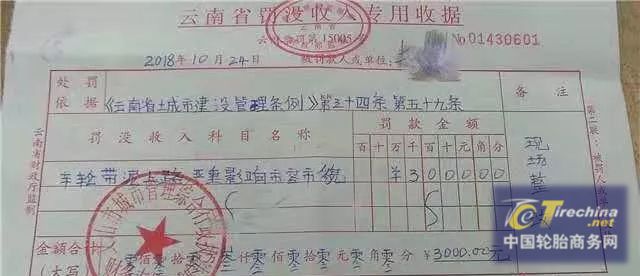 云南省罚没收入专用收据
No 01430601
2018年10月24日
被罚款人或单位:
处罚依据
《云南省土城市建设管理条例》第三十四条 第五十九条
备注
罚没收入科目名称
罚款金额
百十万千百十元角分
车轮带泥上路 严重影响市容市貌
¥300000
现场整
金额合计
(大写
零佰零拾零万叁仟零佰零拾零元零角零分 ¥3000.00元
云南省财政厅监制
第二联:被罚人或单
Tirechina.net
中国轮胎商务网